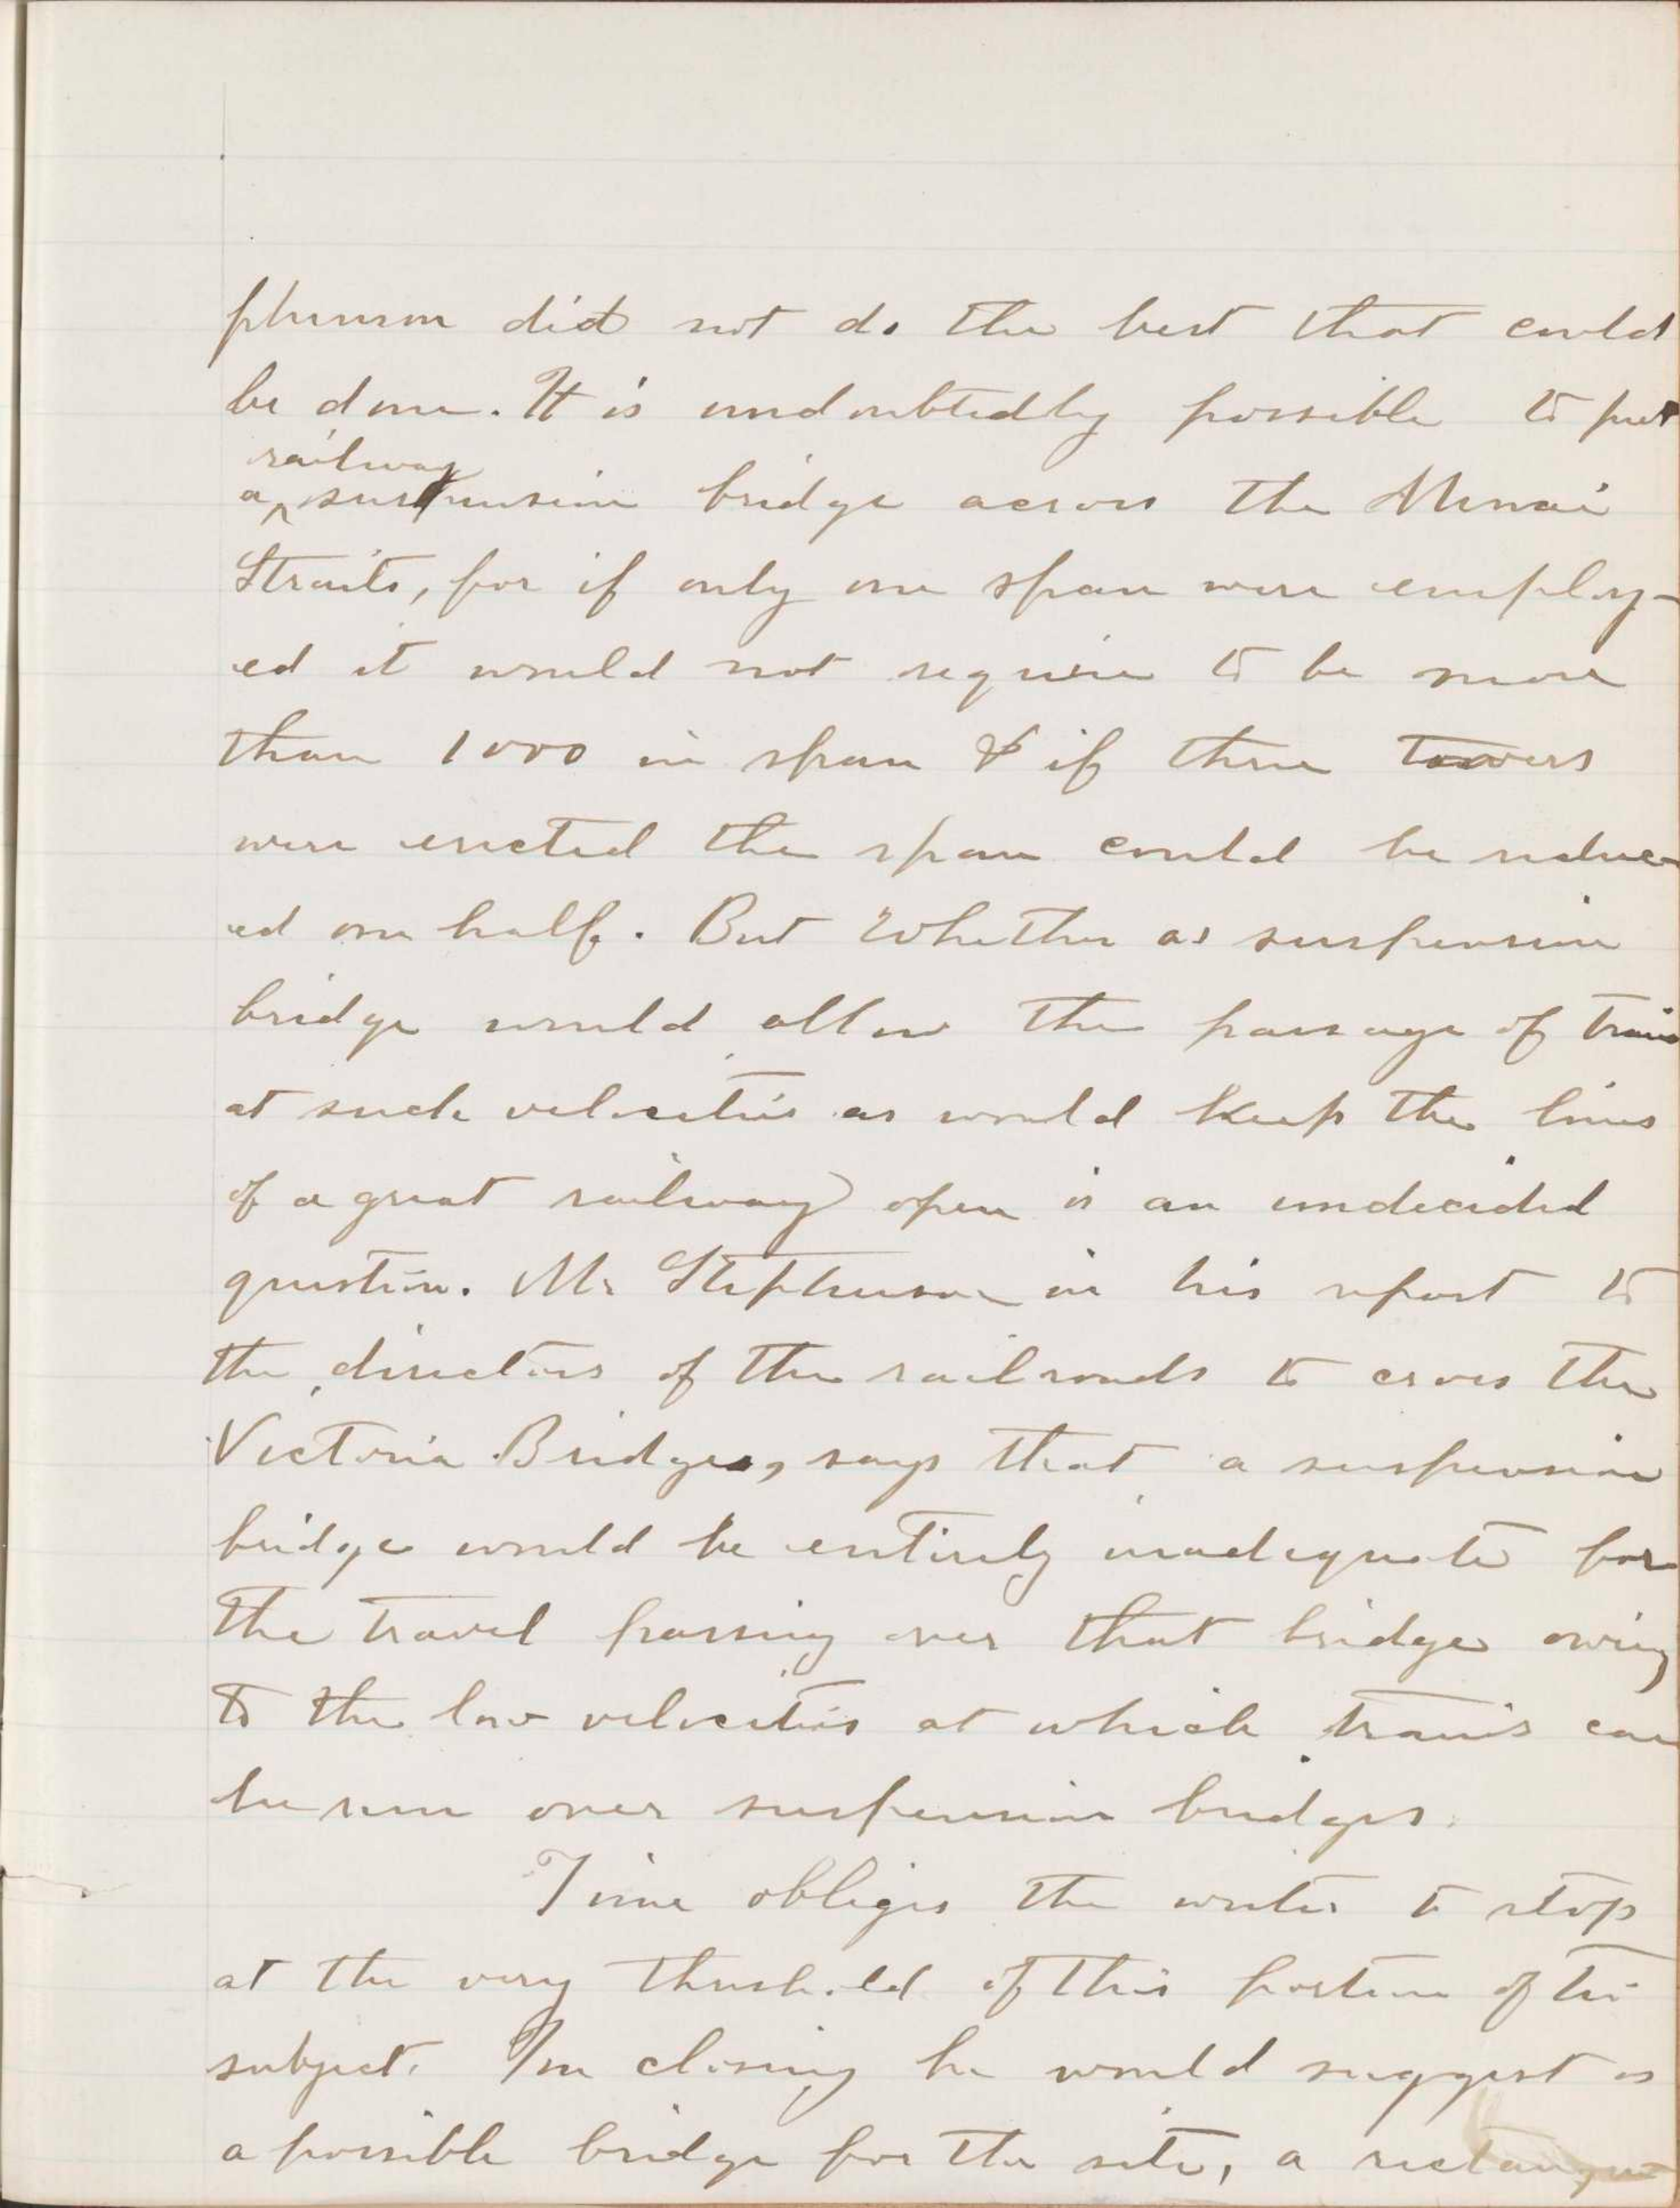 phenson did not do the best that could
be done. It is undoubtedly possible to put
railway
a suspension bridge across the Menai
Straits, for if only one span were employ-
ed it would not require to be more
than 1000 in span & if three towers
were erected the span could be reduc-
ed one half. But whether as suspension
bridge would allow the passage of trains
at such velocities as would keep the lines
of a great railway open is an undecided
question. Mr Stephenson in his report to
the directors of the railroads to cross the
Victoria Bridge, says that a suspension
bridge would be entirely inadequate for
the travel passing over that bridge owing
to the low velocities at which trains can
be run over suspension bridges.
Time obliges the writer to stop
at the very threshold of this portion of his
subject. In closing he would suggest as
a possible bridge for the site, a rectangu-